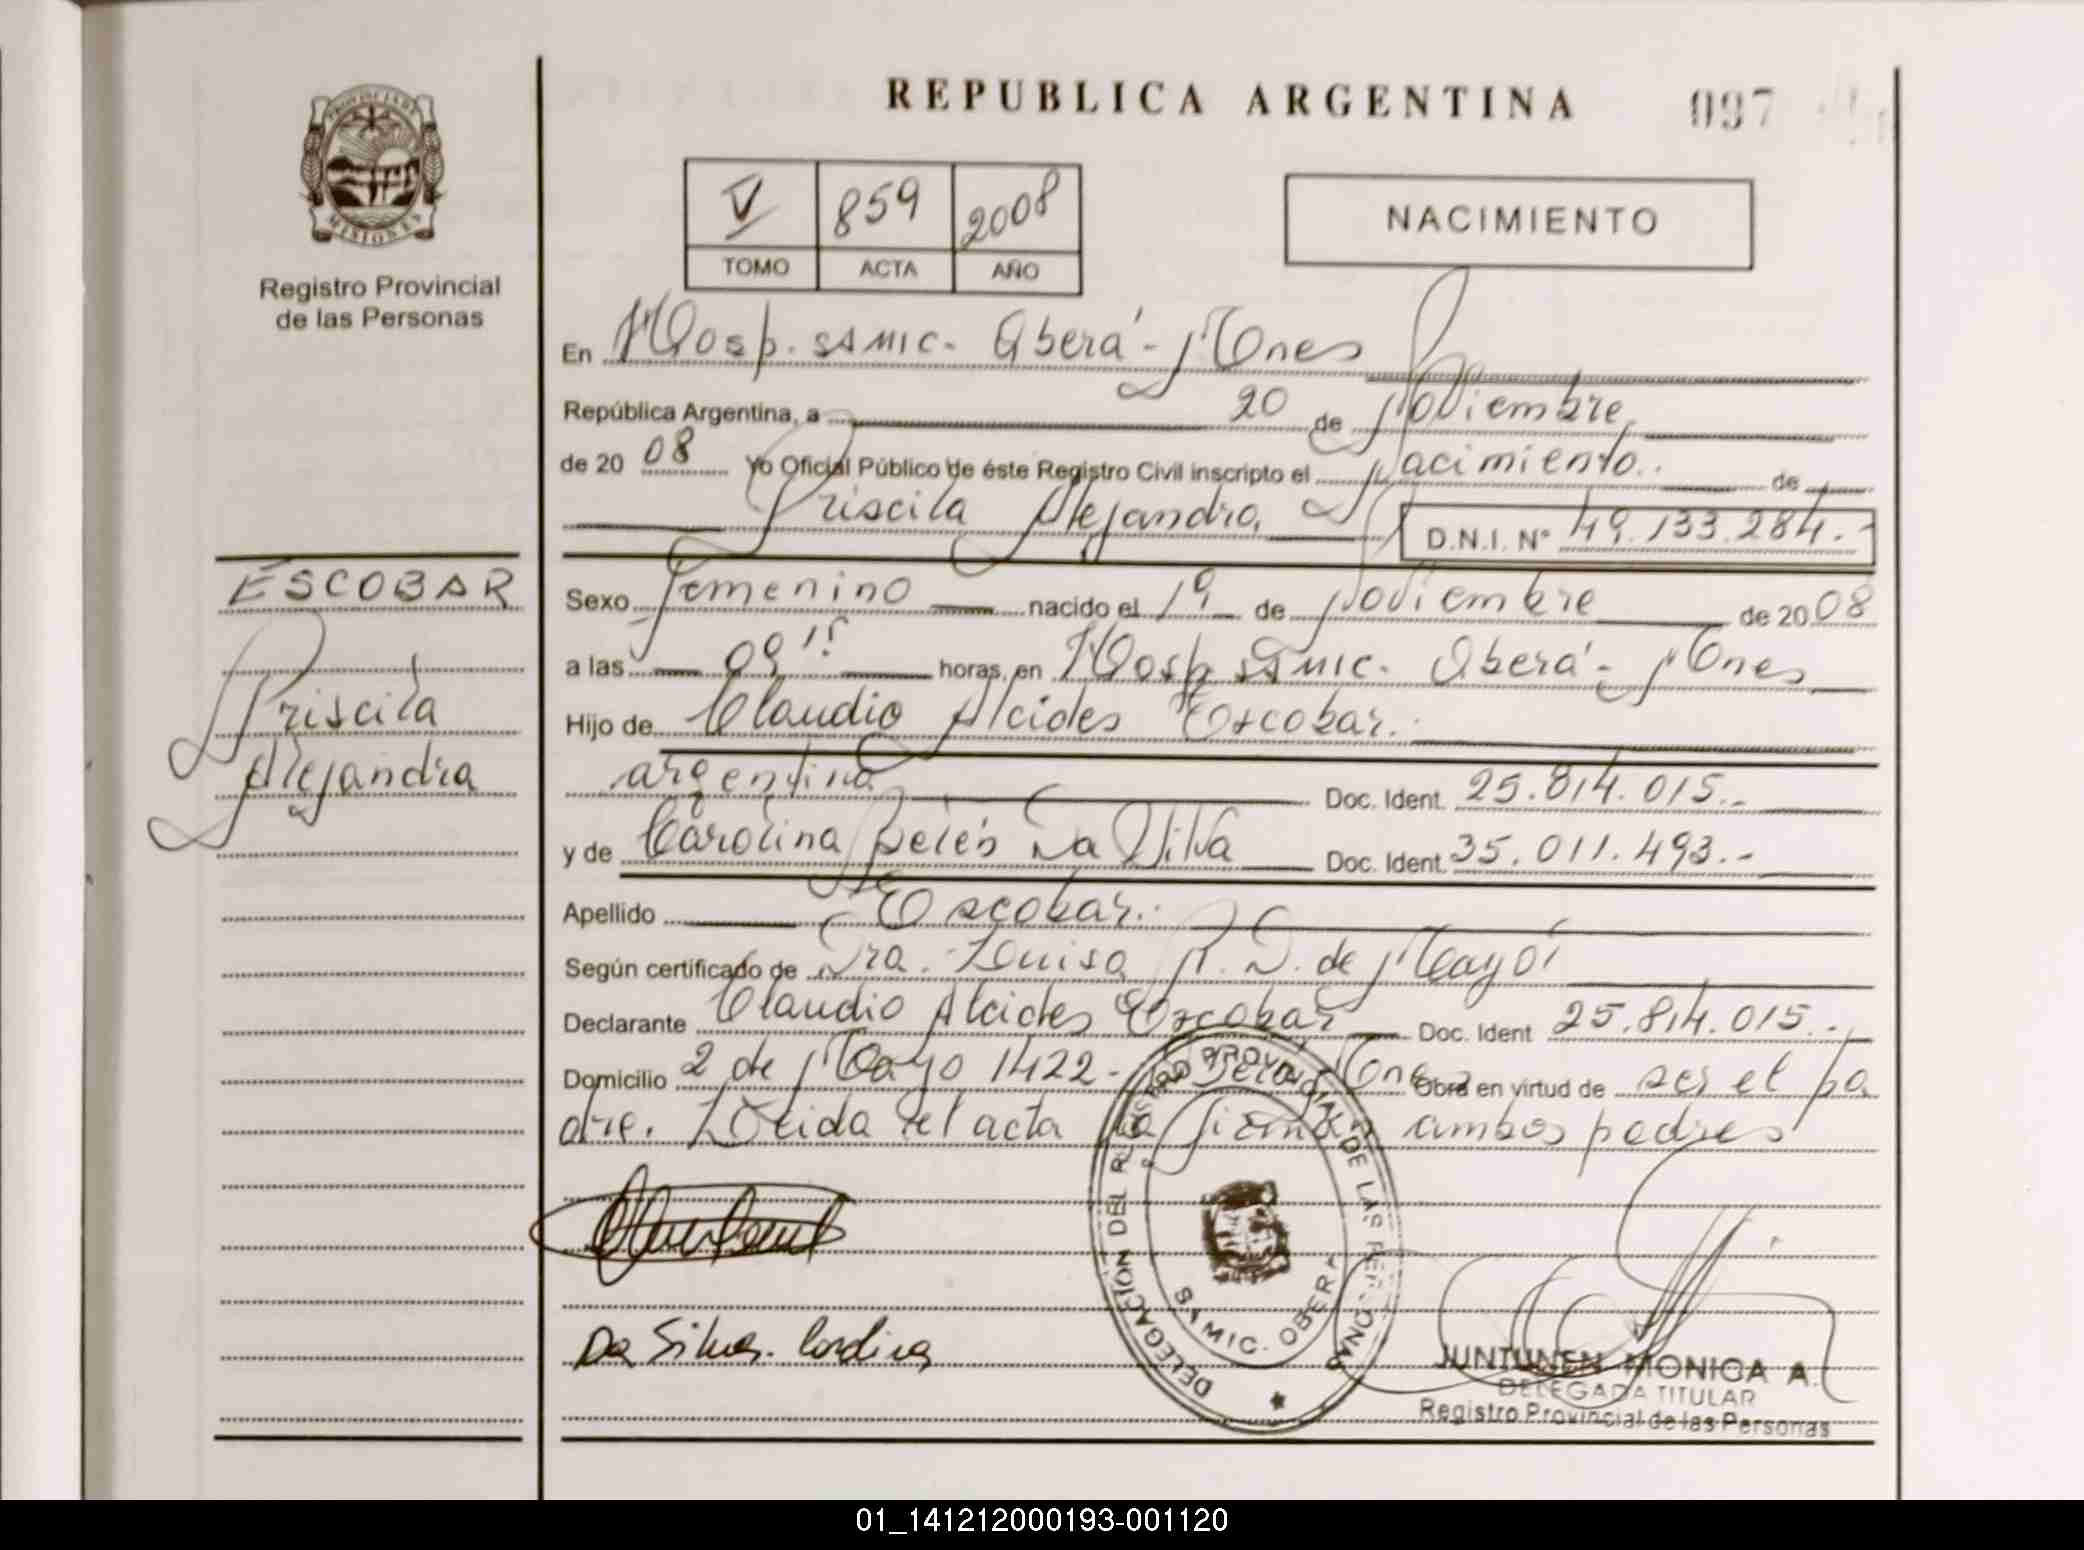 REPUBLICA ARGENTINA 097
PROVINCIA DE MISIONES
Registro Provincial
de las Personas
V 859 2008
TOMO ACTA AÑO
NACIMIENTO
En Hosp. SAMIC. Oberá - Mnes
República Argentina, a 20 de Noviembre
de 20 08 Yo Oficial Público de éste Registro Civil inscripto el Nacimiento. de
Priscila Alejandra D.N.I. Nº 49.133.284.-
ESCOBAR
Priscila
Alejandra
Sexo Femenino nacido el 19 de Noviembre de 20 08
a las 09 15 horas, en Hosp SAMIC. Oberá - Mnes
Hijo de Claudio Alcides Escobar.
argentina Doc. Ident. 25.814.015.-
y de Carolina Belén Da Silva Doc. Ident. 35.011.493.-
Apellido Escobar.
Según certificado de Dra. Luisa R. D. de
Declarante Claudio Alcides Escobar Doc. Ident 25.814.015.-
Domicilio 2 de Mayo 1422 - Oberá Mnes Obra en virtud de ser el pa
dre. Leida el acta la firman ambos padres
Da Silva. Carolina
DELEGACIÓN DEL REGISTRO PROVINCIAL DE LAS PERSONAS
SAMIC. OBERA
JUNTUNEN MONICA A.
DELEGADA TITULAR
Registro Provincial de las Personas
01_141212000193-001120